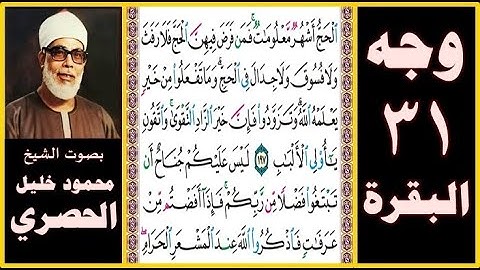 ٱلْحَجُّ أَشْهُرٌ مَّعْلُومَٰتٌ ۚ فَمَن فَرَضَ فِيهِنَّ ٱلْحَجَّ فَلَا رَفَثَ
وَلَا فُسُوقَ وَلَا جِدَالَ فِى ٱلْحَجِّ ۗ وَمَا تَفْعَلُوا۟ مِنْ خَيْرٍ
يَعْلَمْهُ ٱللَّهُ ۗ وَتَزَوَّدُوا۟ فَإِنَّ خَيْرَ ٱلزَّادِ ٱلتَّقْوَىٰ ۚ وَٱتَّقُونِ
يَٰٓأُو۟لِى ٱلْأَلْبَٰبِ ١٩٧ لَيْسَ عَلَيْكُمْ جُنَاحٌ أَن
تَبْتَغُوا۟ فَضْلًا مِّن رَّبِّكُمْ ۚ فَإِذَآ أَفَضْتُم مِّنْ
عَرَفَٰتٍ فَٱذْكُرُوا۟ ٱللَّهَ عِندَ ٱلْمَشْعَرِ ٱلْحَرَامِ ۖ
وجه
٣١
البقرة
بصوت الشيخ
محمود خليل
الحصري